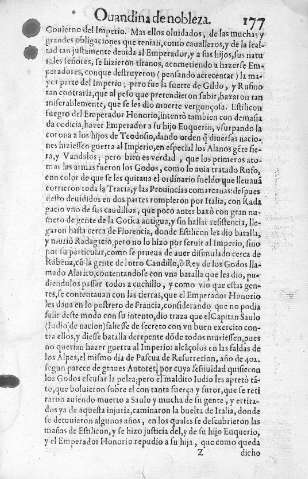 Ouandina de nobleza. 177
Gouierno del Imperio. Mas ellos oluidados, de las muchas y
grandes obligaciones que tenian, como caualleros, y de la leal-
tad tan justamente deuida al Emperador, y a sus hijos, sus natu-
rales señores, se hizieron tiranos, acometiendo a hazerse Em-
peradores, conque destruyeron (pensando acrecentar) la ma-
yor parte del Imperio; pero fue la suerte de Gildo, y Rufino
tan contraria, que al peso que pretendieron subir, baxaron tan
miserablemente, que se les dio muerte vergonçosa. Estilicon
suegro del Emperador Honorio, intentò tambien con demasia
da codicia, hazer Emperador a su hijo Euquerio, vsurpando la
corona a los hijos de Teodosio, dando orden que diuersas nacio-
nes hiziessen guerra al Imperio, en especial los Alanos gẽte fie-
ra, y Vandalos; pero bien es verdad, que los primeros que to-
maron las armas fueron los Godos, como lo auia tratado Rufo,
con color de que se les quitaua el ordinario sueldo que lleuauã
corrieron toda la Tracia, y las Prouincias comarcanas: despues
desto deuididos en dos partes rompieron por Italia, con Rada
gacio vno de sus caudillos, que poco antes baxò con gran nu-
mero de gente de la Gotica antigua, y sin hallar resistẽcia, lle-
garon hasta cerca de Florencia, donde Estilicon les dio batalla,
y murió Radagacio, pero no lo hizo por seruir al Imperio, sino
por su particular, como se prueua de auer disimulado cerca de
Rabena, cõ la gente de otro Caudillo, o Rey de los Godos lla-
mado Alarico, contentandose con vna batalla que les dio, pu-
diendolos passar todos a cuchillo, y como vio que estas gen-
tes, se contentauan con tierras, que el Emperador Honorio
les daua en lo postrero de Francia, considerando que no podia
salir deste modo con su intento, dio traza que el Capitan Saulo
(Iudio de nacion) saliesse de secreto con vn buen exercito con-
tra ellos, y diesse batalla de repente dõde todos muriessen, pues
no querian hazer guerra al Imperio: alcançolos en las faldas de
los Alpes, el mismo dia de Pascua de Resurreccion, año de 402.
segun parece de graues Autores, por cuya festiuidad quisieron
los Godos escusar la pelea; pero el maldito Iudio les apretò tã-
to, que boluieron sobre el con tanta fuerça y furor, que se reti-
raron auiendo muerto a Saulo y mucha de su gente, y irrita-
dos ya de aquesta injuria, caminaron la buelta de Italia, donde
se detuuieron algunos años, en los quales se descubrieron las
mañas de Estilicon, y se hizo justicia del, y de su hijo Euquerio,
y el Emperador Honorio repudio a su hija, que como queda
Z dicho